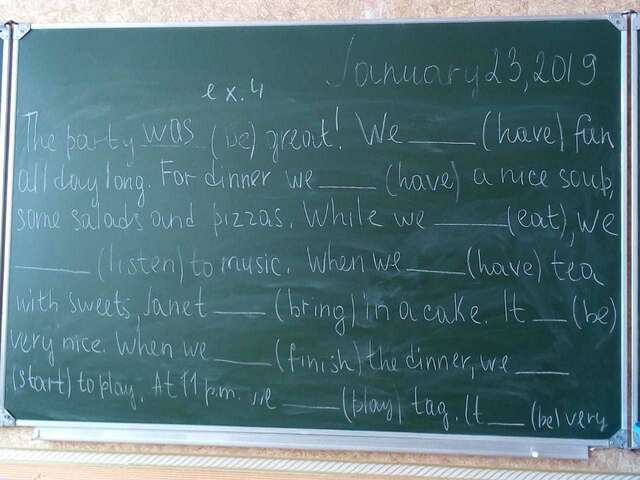 January 23, 2019
ex. 4
The party was (be) great! We ____ (have) fun
all day long. For dinner we ____ (have) a nice soup,
some salads and pizzas. While we ____ (eat), we
____ (listen) to music. When we ____ (have) tea
with sweets, Janet ____ (bring) in a cake. It __ (be)
very nice. When we ____ (finish) the dinner, we ____
(start) to play. At 11 p.m. we ____ (play) tag. It __ (be) very